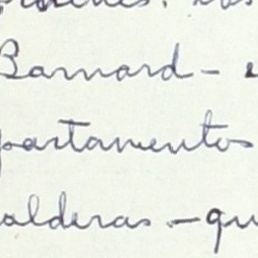 Barnard -
partamentos
alderas. - qu